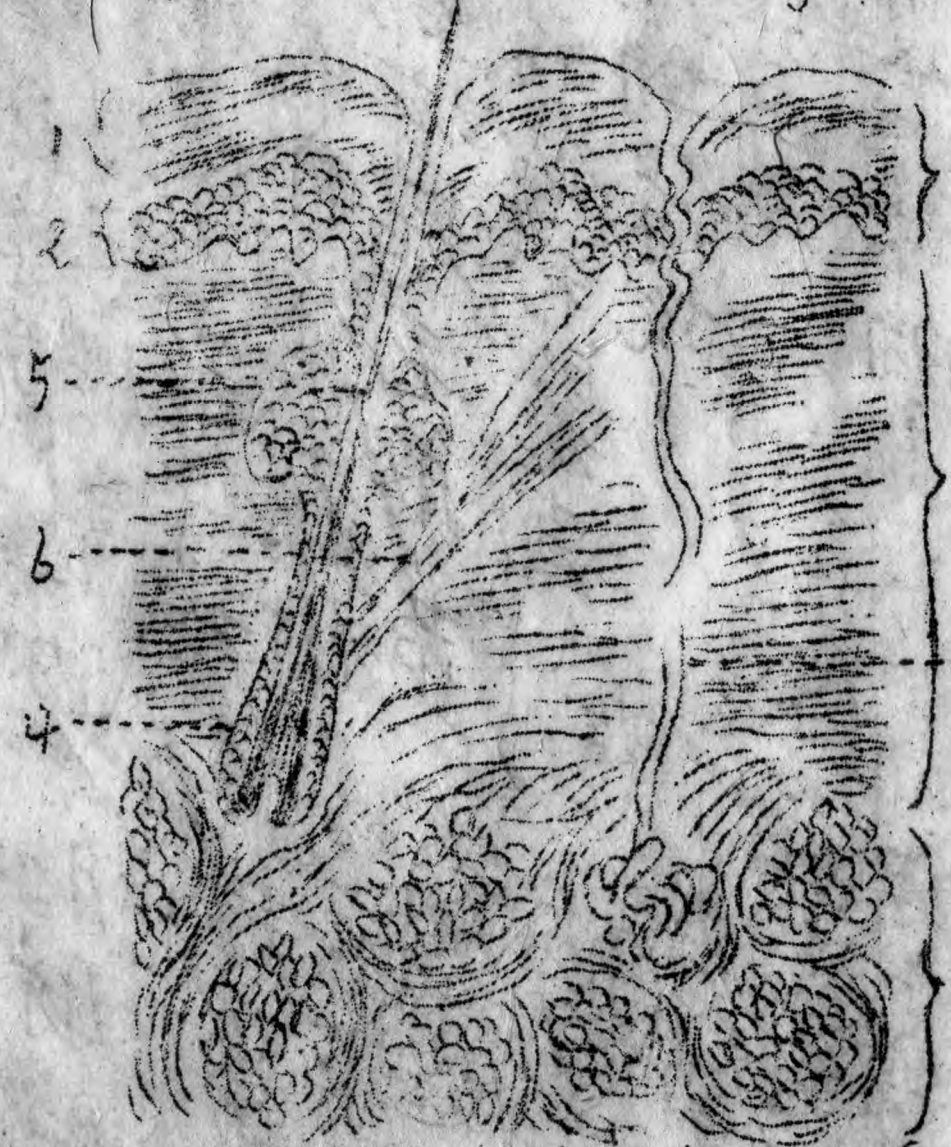 1
2
5
6
4